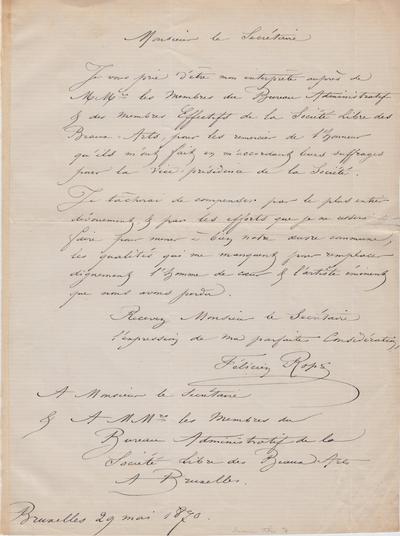 Monsieur le Secrétaire
Je vous prie d'être mon interprète auprès de
M.Mrs les Membres du Bureau Administratif
& des Membres Effectifs de la Société Libre des
Beaux-Arts, pour les remercier de l'honneur
qu'ils m'ont fait en m'accordant leurs suffrages
pour la vice présidence de la Société.
Je tâcherai de compenser par le plus entier
dévouement & par les efforts que je ne cesserai de
faire pour mener à bien notre œuvre commune,
les qualités qui me manquent pour remplacer
dignement l'homme de cœur & l'artiste éminent
que nous avons perdu.
Recevez Monsieur le Secrétaire
l'expression de ma parfaite Considération,
Félicien Rops
A Monsieur le Secrétaire
& A M.Mrs les Membres du
Bureau Administratif de la
Société Libre des Beaux-Arts
A Bruxelles.
Bruxelles 29 mai 1870.